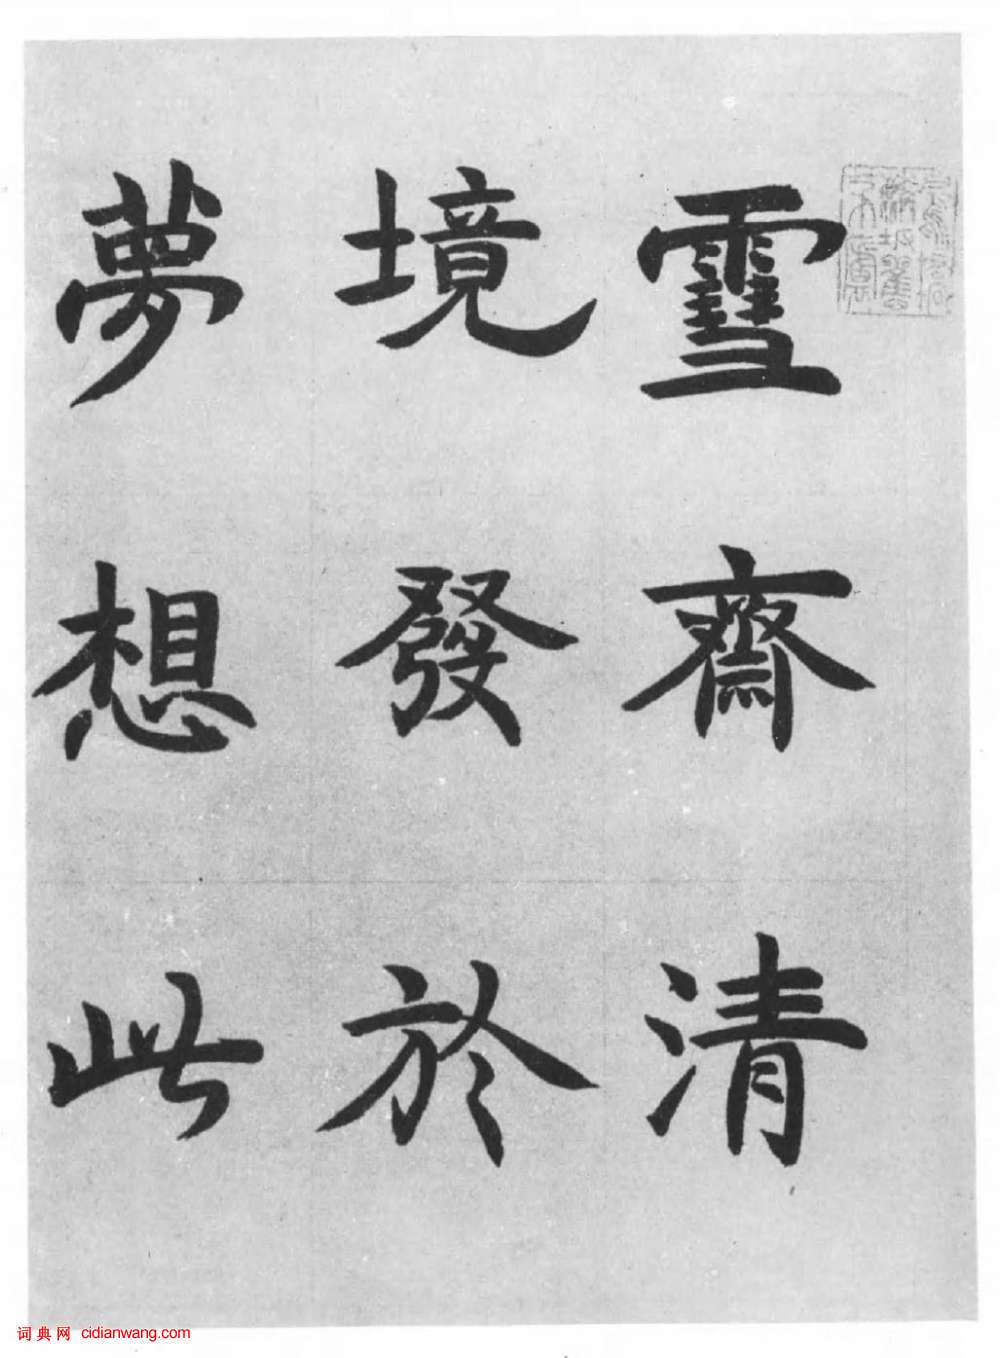 雪齋清
境發於
夢想此
词典网 cidianwang.com